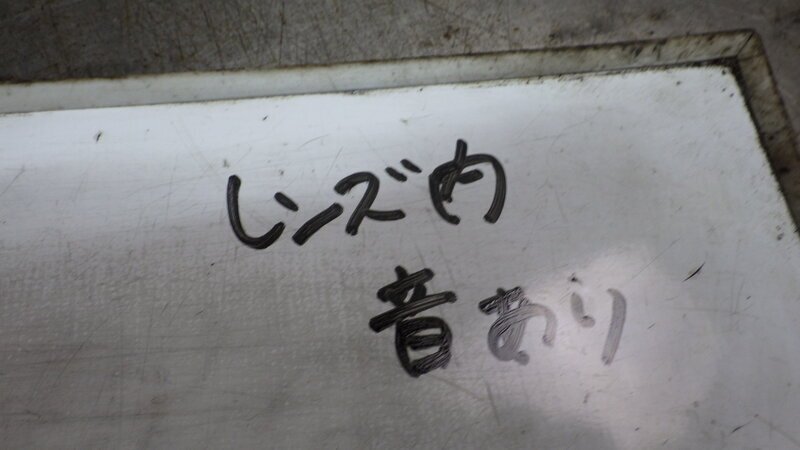 レンズ内
音あり